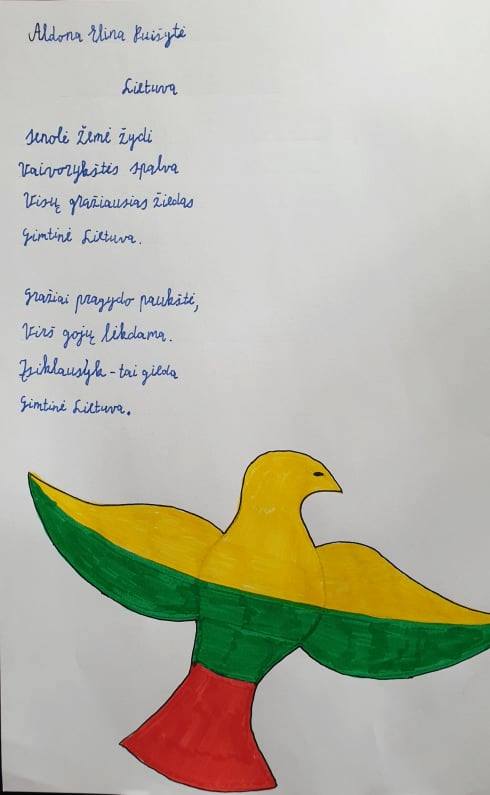 Aldona Elina Puišytė
Lietuva
Senolė Žemė žydi
Vaivorykštės spalva
Visų gražiausias žiedas
Gimtinė Lietuva.
Gražiai pragydo paukštė,
Virš gojų lėkdama.
Įsiklausyk - tai gieda
Gimtinė Lietuva.